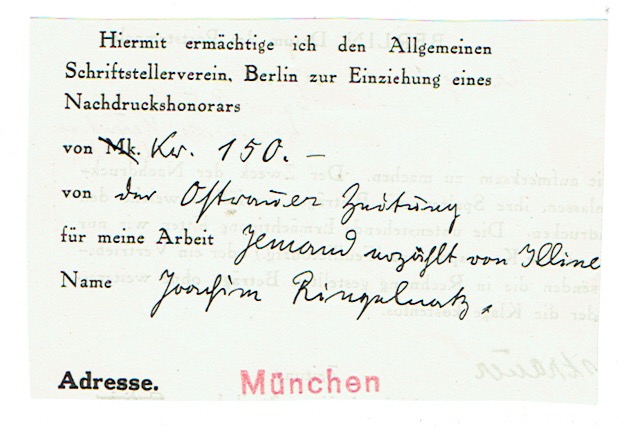 Hiermit ermächtige ich den Allgemeinen
Schriftstellerverein, Berlin zur Einziehung eines
Nachdruckshonorars
von Mk. Kr. 150. –
von der Ostrauer Zeitung
für meine Arbeit Jemand erzählt von Illine
Name Joachim Ringelnatz.
Adresse. München